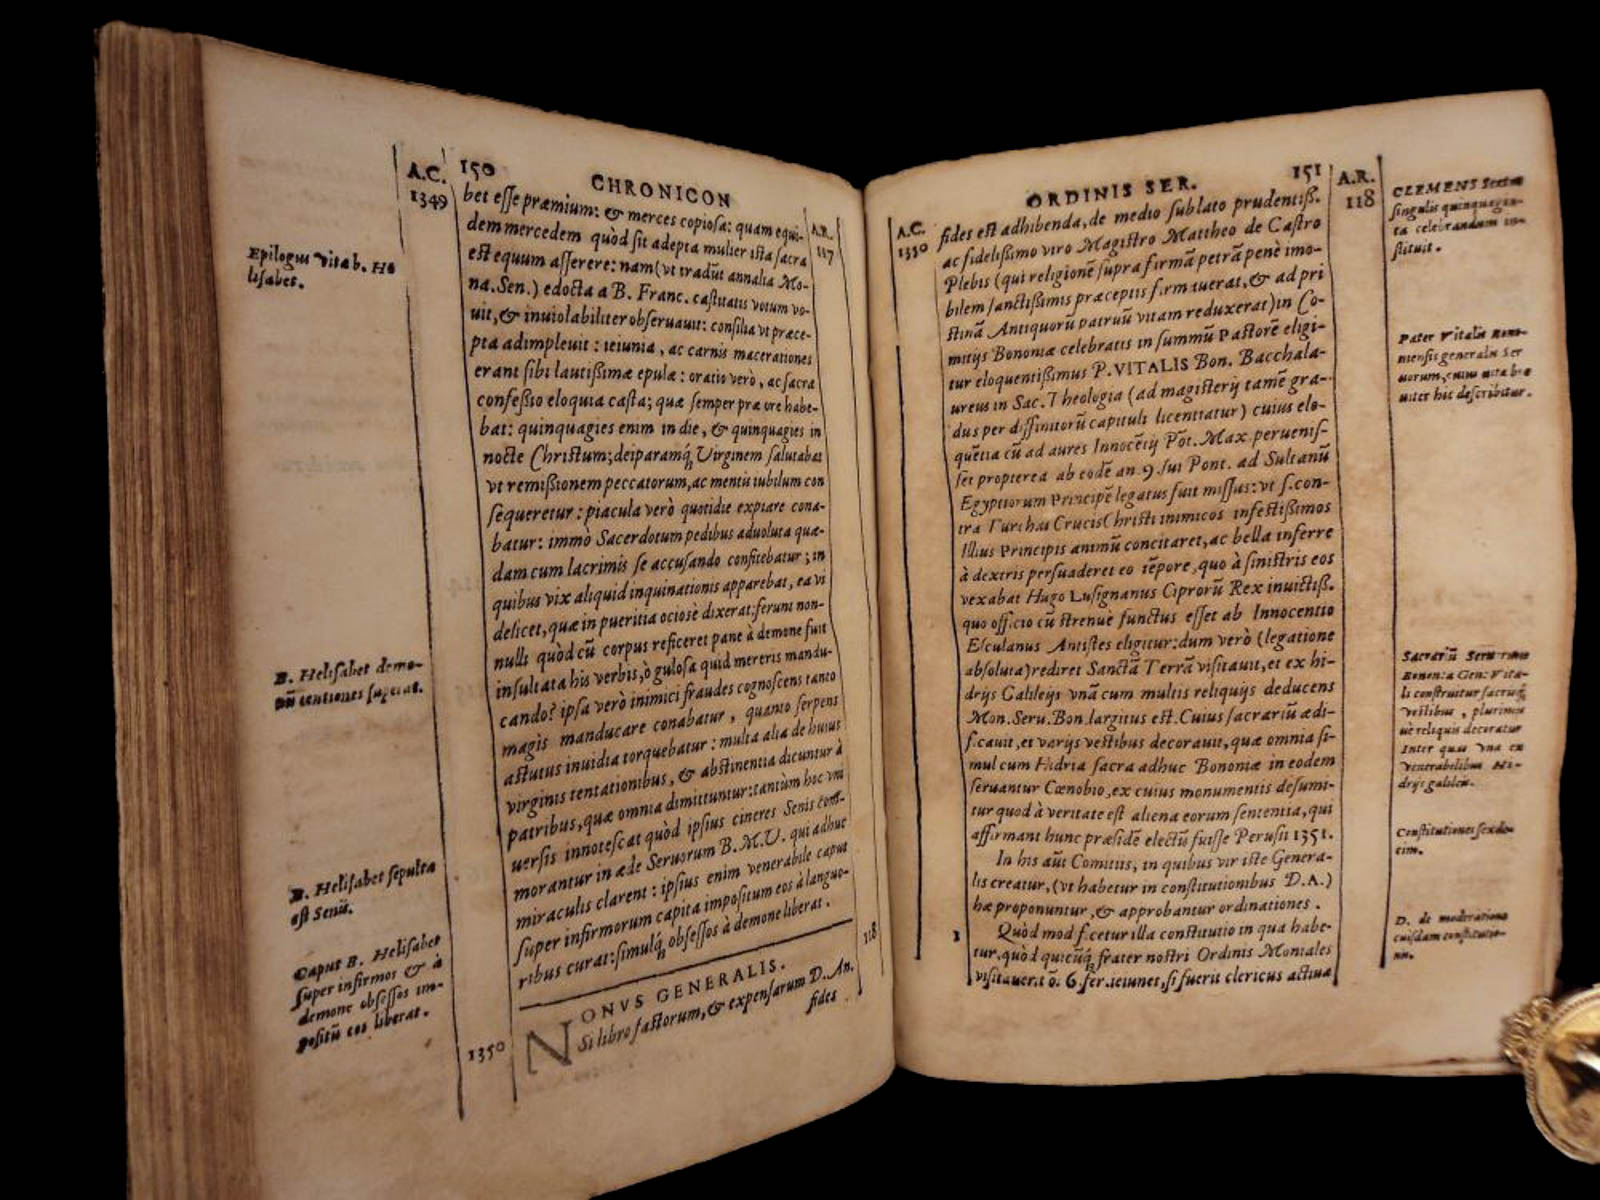 A.C. 150 CHRONICON
1349 A.R.
117
bet esse præmium: & merces copiosa: quam equi-
dem mercedem quòd sit adepta mulier ista sacra
est equum asserere: nam (vt tradũt annalia Mo-
na. Sen.) edocta a B. Franc. castitatis votum vo-
uit, & inuiolabiliter obseruauit: consilia vt præce-
pta adimpleuit: ieiunia, ac carnis macerationes
erant sibi lautißimæ epulæ: oratio verò, ac sacra
confeßio eloquia casta; quæ semper præ ore habe-
bat: quinquagies enim in die, & quinquagies in
nocte Christum; deiparamq́; Virginem salutabat
vt remißionem peccatorum, ac mentis iubilum con
sequeretur: piacula verò quotidie expiare cona-
batur: immò Sacerdotum pedibus aduoluta quæ-
dam cum lacrimis se accusando confitebatur; in
quibus vix aliquid inquinationis apparebat, ea vi
delicet, quæ in pueritia ociosè dixerat: ferunt non-
nulli quòd cũ corpus reficeret pane à demone fuit
insultata his verbis, ò gulosa quid mereris mandu-
cando? ipsa verò inimici fraudes cognoscens tanto
magis manducare conabatur, quanto serpens
astutus inuidia torquebatur: multa alia de huius
virginis tentationibus, & abstinentia dicuntur à
patribus, quæ omnia dimittuntur: tantùm hoc vni
uersis innotescat quòd ipsius cineres Senis com-
morantur in æde Seruorum B.M.V. qui adhuc
miraculis clarent: ipsius enim venerabile caput
super infirmorum capita impositum eos à languo-
ribus curat: simulq́; obsessos à demone liberat.
118
NONVS GENERALIS.
1350 Si libro factorum, & expensarum D. An.
fides
Epilogus vitæ b. He
lisabet.
B. Helisabet demo-
nũ tentationes superat.
B. Helisabet sepulta
est Senis.
Caput B. Helisabet
super infirmos & à
demone obsessos im-
positũ eos liberat.
ORDINIS SER. 151 A.R.
118
A.C.
1350
fides est adhibenda, de medio sublato prudentiß.
ac fidelißimo viro Magistro Mattheo de Castro
Plebis (qui religionẽ supra firmã petrã penè imo-
bilem sanctißimis præceptis firmauerat, & ad pri
stinã Antiquorũ patruũ vitam reduxerat) in Co-
mitijs Bononiæ celebratis in summũ Pastorẽ eligi-
tur eloquentißimus P. VITALIS Bon. Bacchala-
ureus in Sac. Theologia (ad magisterij tamẽ gra-
dus per diffinitorũ capituli licentiatur) cuius elo-
quẽtia cũ ad aures Innocẽtij Põt. Max. peruenis-
set propterea ab eodẽ an. 9. sui Pont. ad Sultanũ
Egyptiorum Principẽ legatus fuit missus: vt s. con-
tra Turchas Crucis Christi inimicos infestißimos
Illius Principis animũ concitaret, ac bella inferre
à dextris persuaderet eo tẽpore, quo à sinistris eos
vexabat Hugo Lusignanus Ciprorũ Rex inuictiß.
quo officio cũ strenuè functus esset ab Innocentio
Esculanus Antistes eligitur: dum verò (legatione
absoluta) rediret Sanctã Terrã visitauit, et ex hi-
drijs Galileijs vnã cum multis reliquijs deducens
Mon. Seru. Bon. largitus est. Cuius sacrariũ ædi-
ficauit, et varijs vestibus decorauit, quæ omnia si-
mul cum Hidria sacra adhuc Bononiæ in eodem
seruantur Cœnobio, ex cuius monumentis desumi-
tur quod à veritate est aliena eorum sententia, qui
affirmant hunc præsidẽ electũ fuisse Perusij 1351.
In his aũt Comitijs, in quibus vir iste Genera-
lis creatur, (vt habetur in constitutionibus D.A.)
hæ proponuntur, & approbantur ordinationes.
1 Quòd modificetur illa constitutio in qua habe-
tur, quòd quicũq́; frater nostri Ordinis Moniales
visitauerit õ. 6. fer. ieiunet, si fuerit clericus actiua
CLEMENS Sextus
singulis quinquagin-
ta celebrandum in-
stituit.
Pater Vitalis Bono-
niensis generalis Ser
uorum, cuius vita bre
uiter hic describitur.
Sacrariũ Seruorum
Bononiæ Gen. Vita-
lis construitur sacrisq́;
vestibus, plurimis
Inter quas vna ex
venerabilibus Hi-
drijs galileis.
Constitutiones sexde
cim.
D. de moderatione
cuiusdam constitutio-
nis.